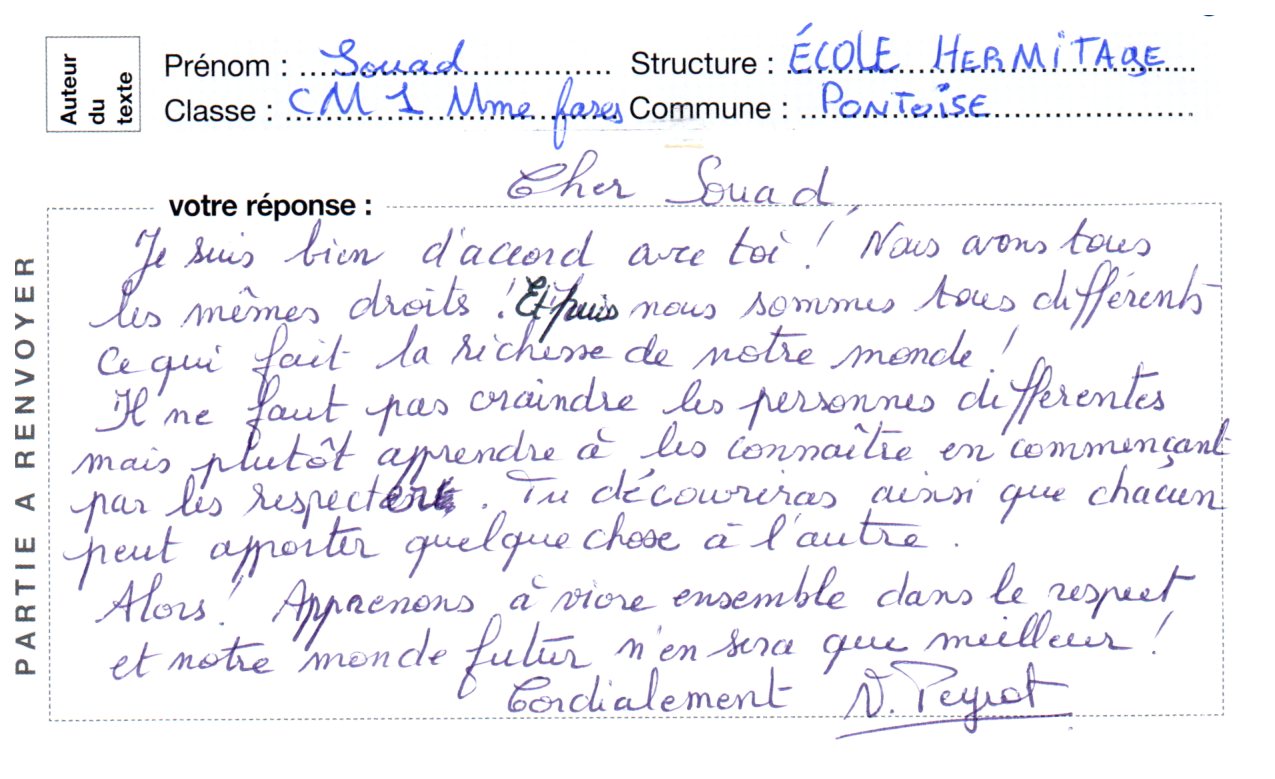 Auteur du texte
Prénom : Souad Structure : ÉCOLE HERMITAGE
Classe : CM1 Mme fares Commune : PONTOISE
Cher Souad,
votre réponse :
Je suis bien d'accord avec toi ! Nous avons tous
les mêmes droits ! Et puis nous sommes tous différents
Ce qui fait la richesse de notre monde !
Il ne faut pas craindre les personnes différentes
mais plutôt apprendre à les connaître en commençant
par les respecter. Tu découvriras ainsi que chacun
peut apporter quelque chose à l'autre.
Alors ! Apprenons à vivre ensemble dans le respect
et notre monde futur n'en sera que meilleur !
Cordialement N. Peyrot
PARTIE A RENVOYER